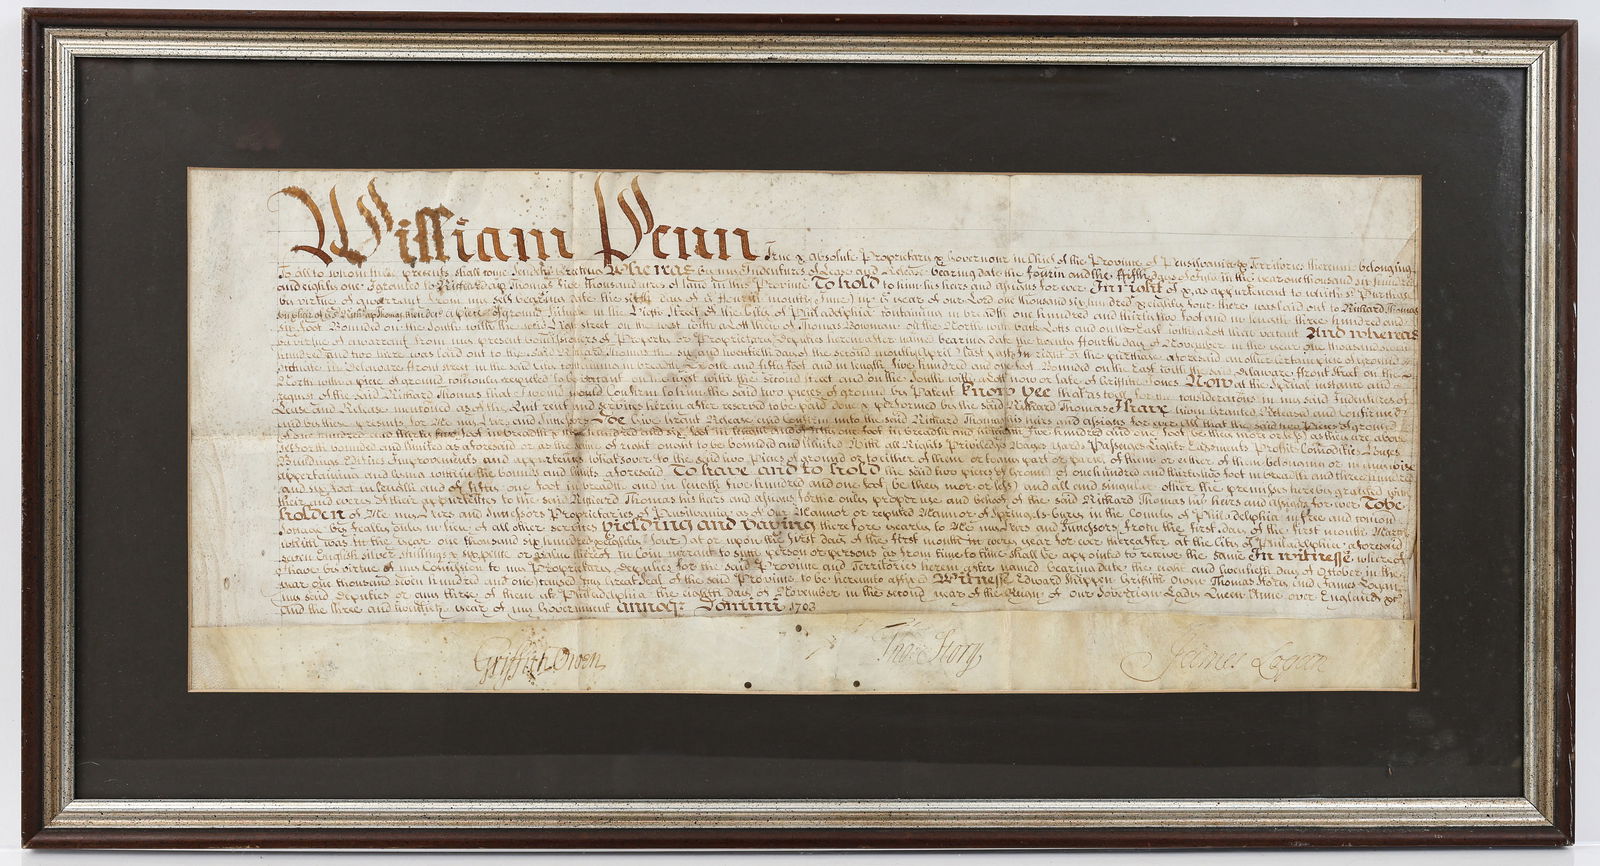 William Penn True & absolute Proprietary & Governour in Chief of the Province of Pensilvania & Territories thereunto belonging
To all to whom these presents shall come Sendeth Greeting Whereas by my Indentures of Lease and Release bearing date the fourth and the fifth days of July in the year one thousand six hundred
and eighty one I granted to Richard ap Thomas five thousand acres of land in this Province To hold to him his heirs and assigns for ever In right of
by virtue of a warrant from my self bearing date the sixth day of the fourth month (June) in the year of our Lord one thousand six hundred & eighty four there was laid out to Richard Thomas
a piece of ground in the High Street of the City of Philadelphia containing in breadth one hundred and thirty two foot and in length three hundred and
six foot Bounded on the South with the said High street on the west with a Lott of Thomas Bowman on the North with back Lotts and on the East with a Lott then vacant And whereas
by virtue of a warrant from my present Commissioners of Property or Proprietary Deputies hereafter named bearing date the twenty fourth day of November in the year one thousand seven
hundred and two there was laid out to the said Richard Thomas the six and twentieth day of the second month (April) last past in right of the purchase aforesaid another certain piece of ground
situate in Delaware front street in the said City containing in breadth fifty one foot and in length five hundred and one foot Bounded on the East with the said Delaware front street on the
North with a piece of ground to be vacant on the west with the second street and on the South with a Lott now or late of Griffith Jones Now at the special instance and
request of the said Richard Thomas that I would confirm to him the said two pieces of ground by Patent Know yee that as well for the considerations in my said Indentures of
Lease and Release mentioned as of the Quit rent and services herein after reserved to be paid done & performed by the said Richard Thomas I have given Granted Released and Confirmed
and by these presents for Me my heirs and Successors Doe Give Grant Release and Confirm unto the said Richard Thomas his heirs and assigns for ever all that the said two pieces of ground
of one hundred and thirty two foot in breadth & three hundred and six foot in length and of fifty one foot in breadth and in length five hundred and one foot be they more or less as they are above
set forth bounded and limited as aforesaid or as they of right ought to be bounded and limited With all Rights Priviledges Ways Yards Passages Lights Easements Profits Comodities
Buildings Edifices Improvements and appurtenances whatsoever to the said two Pieces of ground or to either of them or to any part or parcel of them or either of them belonging or in any wise
appertaining and being within the bounds and limits aforesaid To have and to hold the said two pieces of ground of one hundred and thirty two foot in breadth and three hundred
and six foot in length and of fifty one foot in breadth and in length five hundred and one foot (be they more or less) and all and singular other the premises hereby granted with
their and every of their appurtenances to the said Richard Thomas his heirs and assigns for the only proper use and behoof of the said Richard Thomas his heirs and assigns for ever To be
holden of Me my heirs and Successors Proprietaries of Pensilvania as of our Mannor or reputed Mannor of Springets-Bury in the County of Philadelphia in free and common
Soccage by fealty only in lieu of all other services Yielding and paying therefore yearly to Me my heirs and Successors from the first day of the first month March
which was in the year one thousand six hundred eighty four at or upon the first day of the first month in every year for ever thereafter at the City of Philadelphia aforesaid
seven English silver shillings & sixpence or value thereof in Coin currant to such person or persons as from time to time shall be appointed to receive the same In witnesse whereof
I have by virtue of my Comission to my Proprietary deputies for the said Province and Territories herein after named bearing date the eight and twentieth day of October in the
year one thousand seven hundred and one caused my Great Seal of the said Province to be hereunto affixed Witnesse Edward Shippen Griffith Owen Thomas Story and James Logan
my said deputies or any three of them at Philadelphia the eighth day of November in the second year of the Reign of our Soverein Lady Queen Anne over England &c
and the three and twentieth year of my Government Annoq: Domini 1703
Griffith Owen
Tho: Story
James Logan